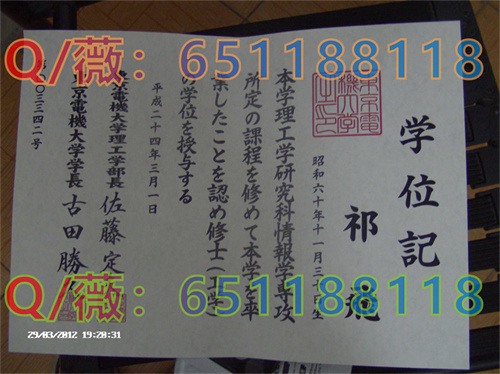 Q/薇：651188118
学位記
祁
昭和六十年十一月三十日生
本学理工学研究科情報学専攻
所定の課程を修めて本学を卒
業したことを認め修士(工学)
の学位を授与する
平成二十四年三月一日
東京電機大学理工学部長 佐藤定
東京電機大学学長 古田勝
三三四二号
Q/薇：651188118
29/03/2012 19:20:31